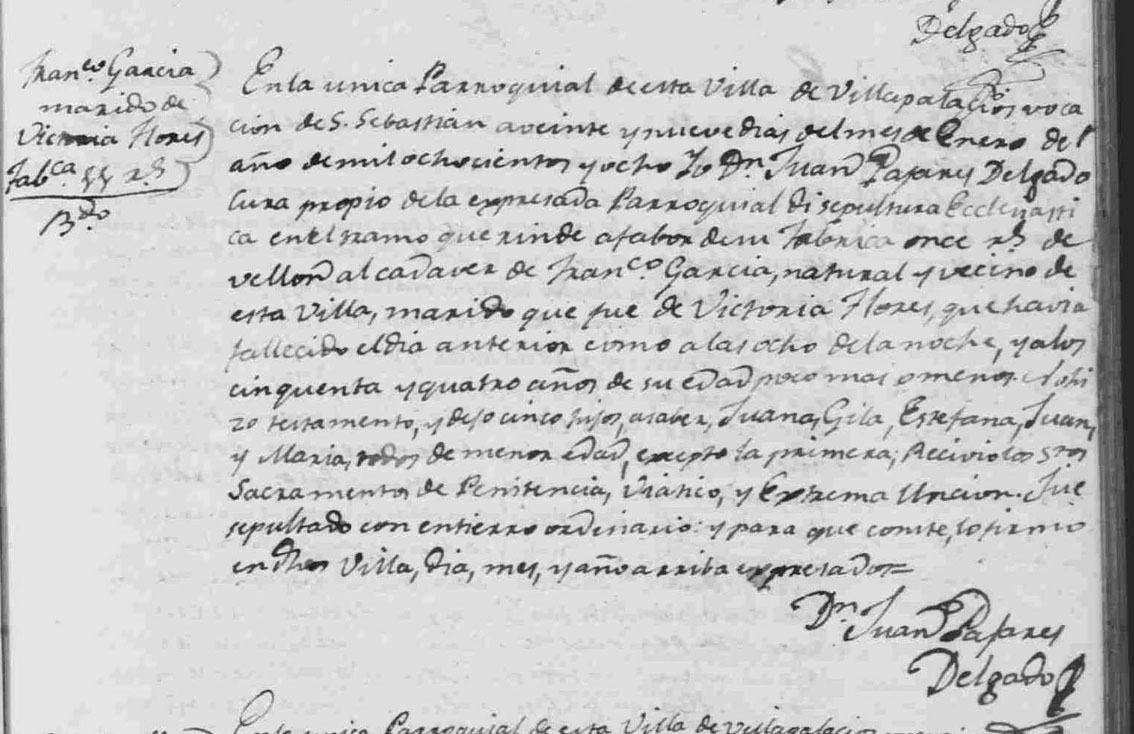 Delgado
Franco. Garcia
marido de
Victoria Flores
Fabca. 11 rs
Bdo.
En la unica Parroquial de esta Villa de Villapalacios voca
cion de S. Sebastián a veinte y nueve dias del mes de Enero del
año de mil ochocientos y ocho Yo Dn. Juan Pajares Delgado
Cura propio de la expresada Parroquial di sepultura Ecclesiasti
ca en el tramo que rinde a fabor de su fabrica once rs. de
vellon al cadaver de Franco Garcia, natural y vecino de
esta Villa, marido que fue de Victoria Flores, que havia
fallecido el dia anterior como a las ocho de la noche, y a los
cinquenta y quatro años de su edad poco mas o menos. No hi
zo testamento, y dejo cinco hijos, a saber, Juana, Gila, Estefana, Juan,
y Maria, todos de menor edad, excepto la primera; Recivio los Stos
Sacramentos de Penitencia, Viatico, y Extrema Uncion. Fue
sepultado con entierro ordinario: y para que conste, lo firmo
en dha Villa, dia, mes, y año arriba expresados=
Dn. Juan Pajares
Delgado
En la unica Parroquial de esta Villa de Villapalacios